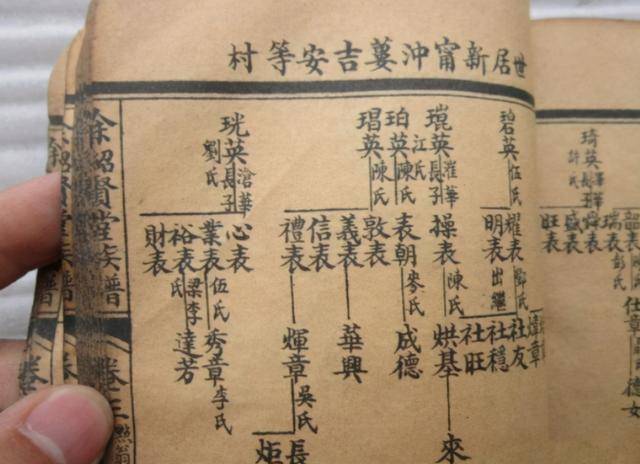 世居新甯沖蔞吉安等村
琦英
許氏
瑞表
彭氏
舜表
盛表
旺表
碧英伍氏
耀表鄧氏
明表出繼
社友
社穩
社旺
琨英漼華長子
江氏
操表陳氏
烘基
來
珀英陳氏
表朝麥氏
成德
琩英陳氏
敦表
義表
華興
信表
禮表
煇章吳氏
長
炬
珖英滄華長子
劉氏
心表
業表伍氏
秀章李氏
裕表梁李氏
達芳
財表
余紹賢堂族譜
卷三